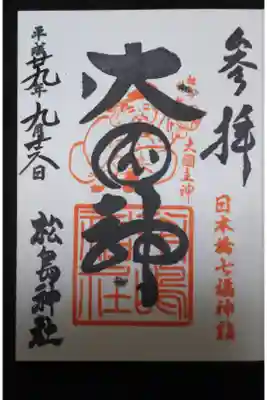 參拝
日本橋七福神詣
大國主神
大国神
平成廿九年九月
松島神社